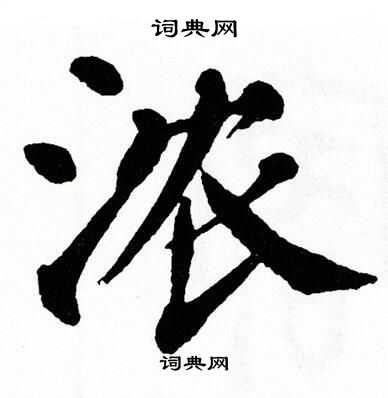 词典网
浓
词典网